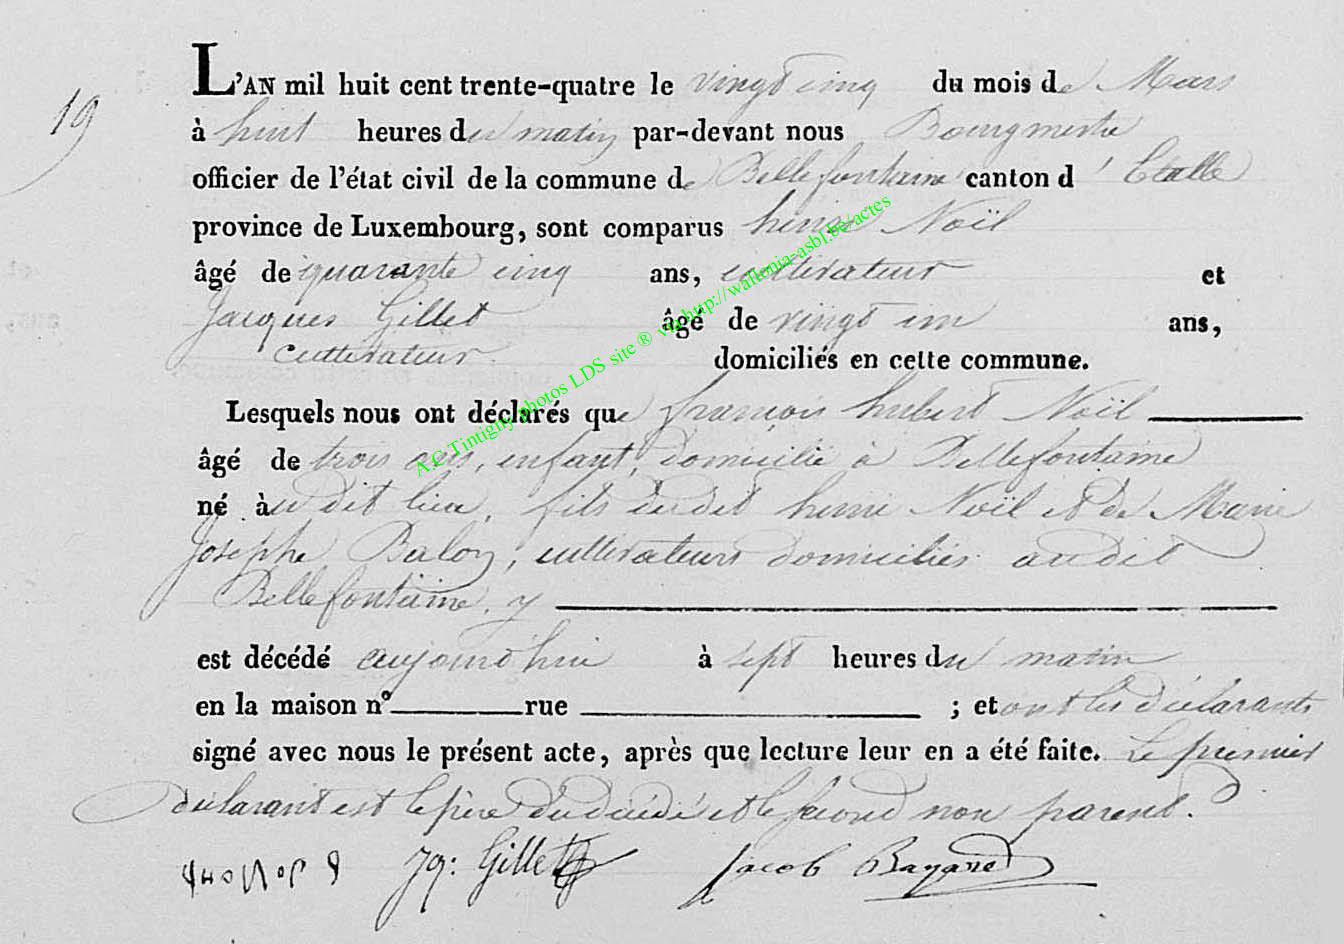 19
L'AN mil huit cent trente-quatre le vingt cinq du mois de Mars
à huit heures du matin par-devant nous Bourgmestre
officier de l'état civil de la commune de Bellefontaine canton d'Etalle
province de Luxembourg, sont comparus henri Noël
âgé de quarante cinq ans, cultivateur et
Jacques Gillet âgé de vingt un ans,
cultivateur domiciliés en cette commune.
Lesquels nous ont déclarés que françois hubert Noël
âgé de trois ans, enfant, domicilié à Bellefontaine
né àu dit lieu, fils dudit henri Noël et de Marie
Josephe Balon, cultivateurs domiciliés audit
Bellefontaine, y
est décédé aujourd'hui à sept heures du matin
en la maison n° rue ; et ont les déclarants
signé avec nous le présent acte, après que lecture leur en a été faite. Le premier
déclarant est le père du décédé et le second non parent.
Jq: Gillet Jacob Bayard
A.C Tintigny photos LDS site ® via http://wallonia-asbl.be/actes